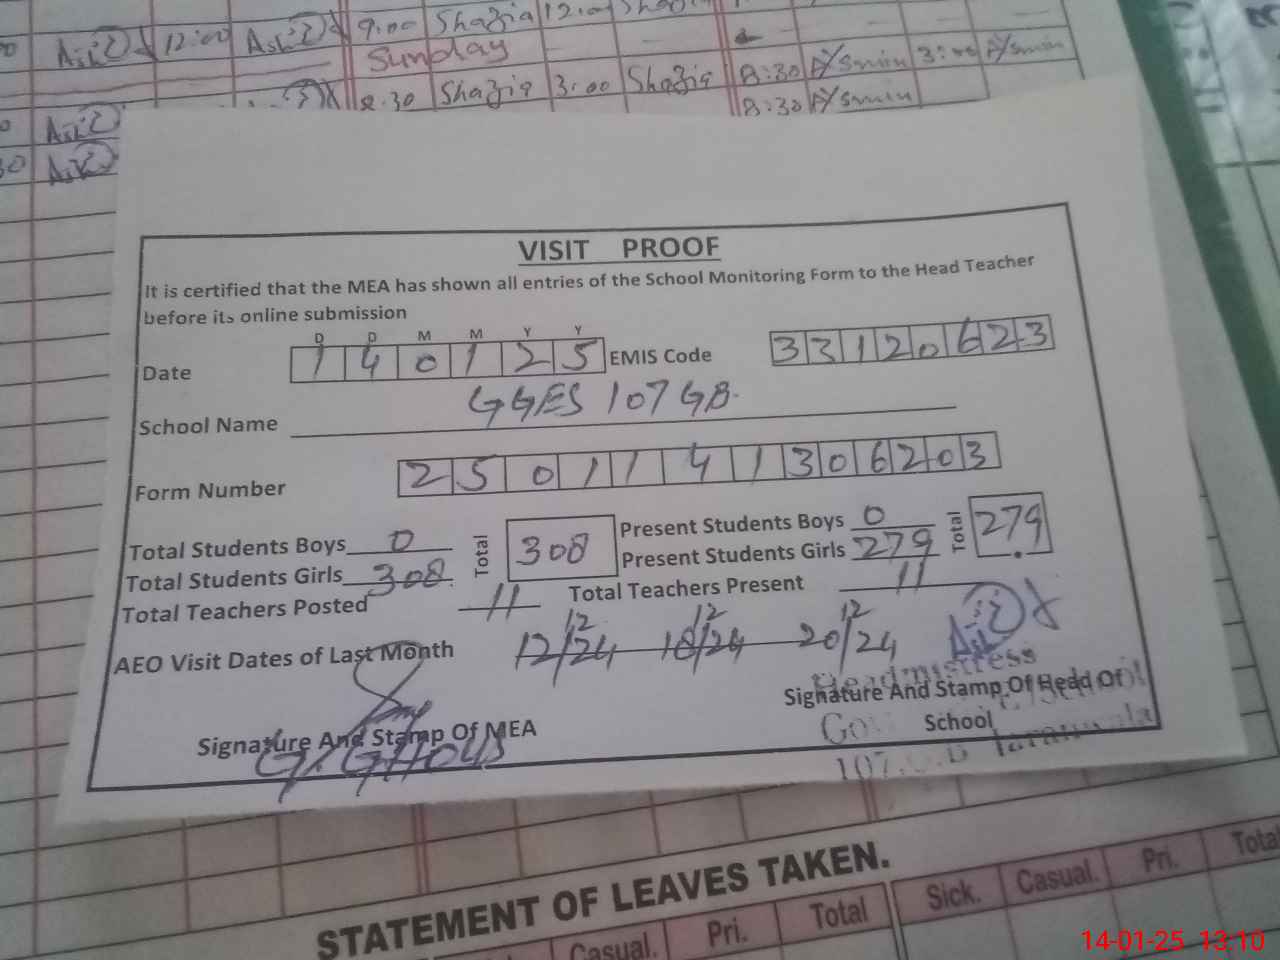 9:00 Shazia 12:00
12:00
Sunday
8:30 Shazia 3:00 Shazia 8:30 A/Smin 3:00 A/Smin
8:30 A/Smin
VISIT PROOF
It is certified that the MEA has shown all entries of the School Monitoring Form to the Head Teacher
before its online submission
D D M M Y Y
Date 1 4 0 1 2 5 EMIS Code 3 3 1 2 0 6 2 3
School Name GGES 107 GB.
Form Number 2 5 0 1 1 4 1 3 0 6 2 0 3
Total Students Boys 0 Total 308 Present Students Boys 0 Total 279
Total Students Girls 308 Present Students Girls 279
Total Teachers Posted 11 Total Teachers Present 11
AEO Visit Dates of Last Month 12/12/24 18/12/24 20/12/24
Headmistress
Signature And Stamp Of Head Of
School
Signature And Stamp Of MEA
G. GHOUS
STATEMENT OF LEAVES TAKEN.
Casual. Pri. Total Sick. Casual. Pri. Total
14-01-25 13:10